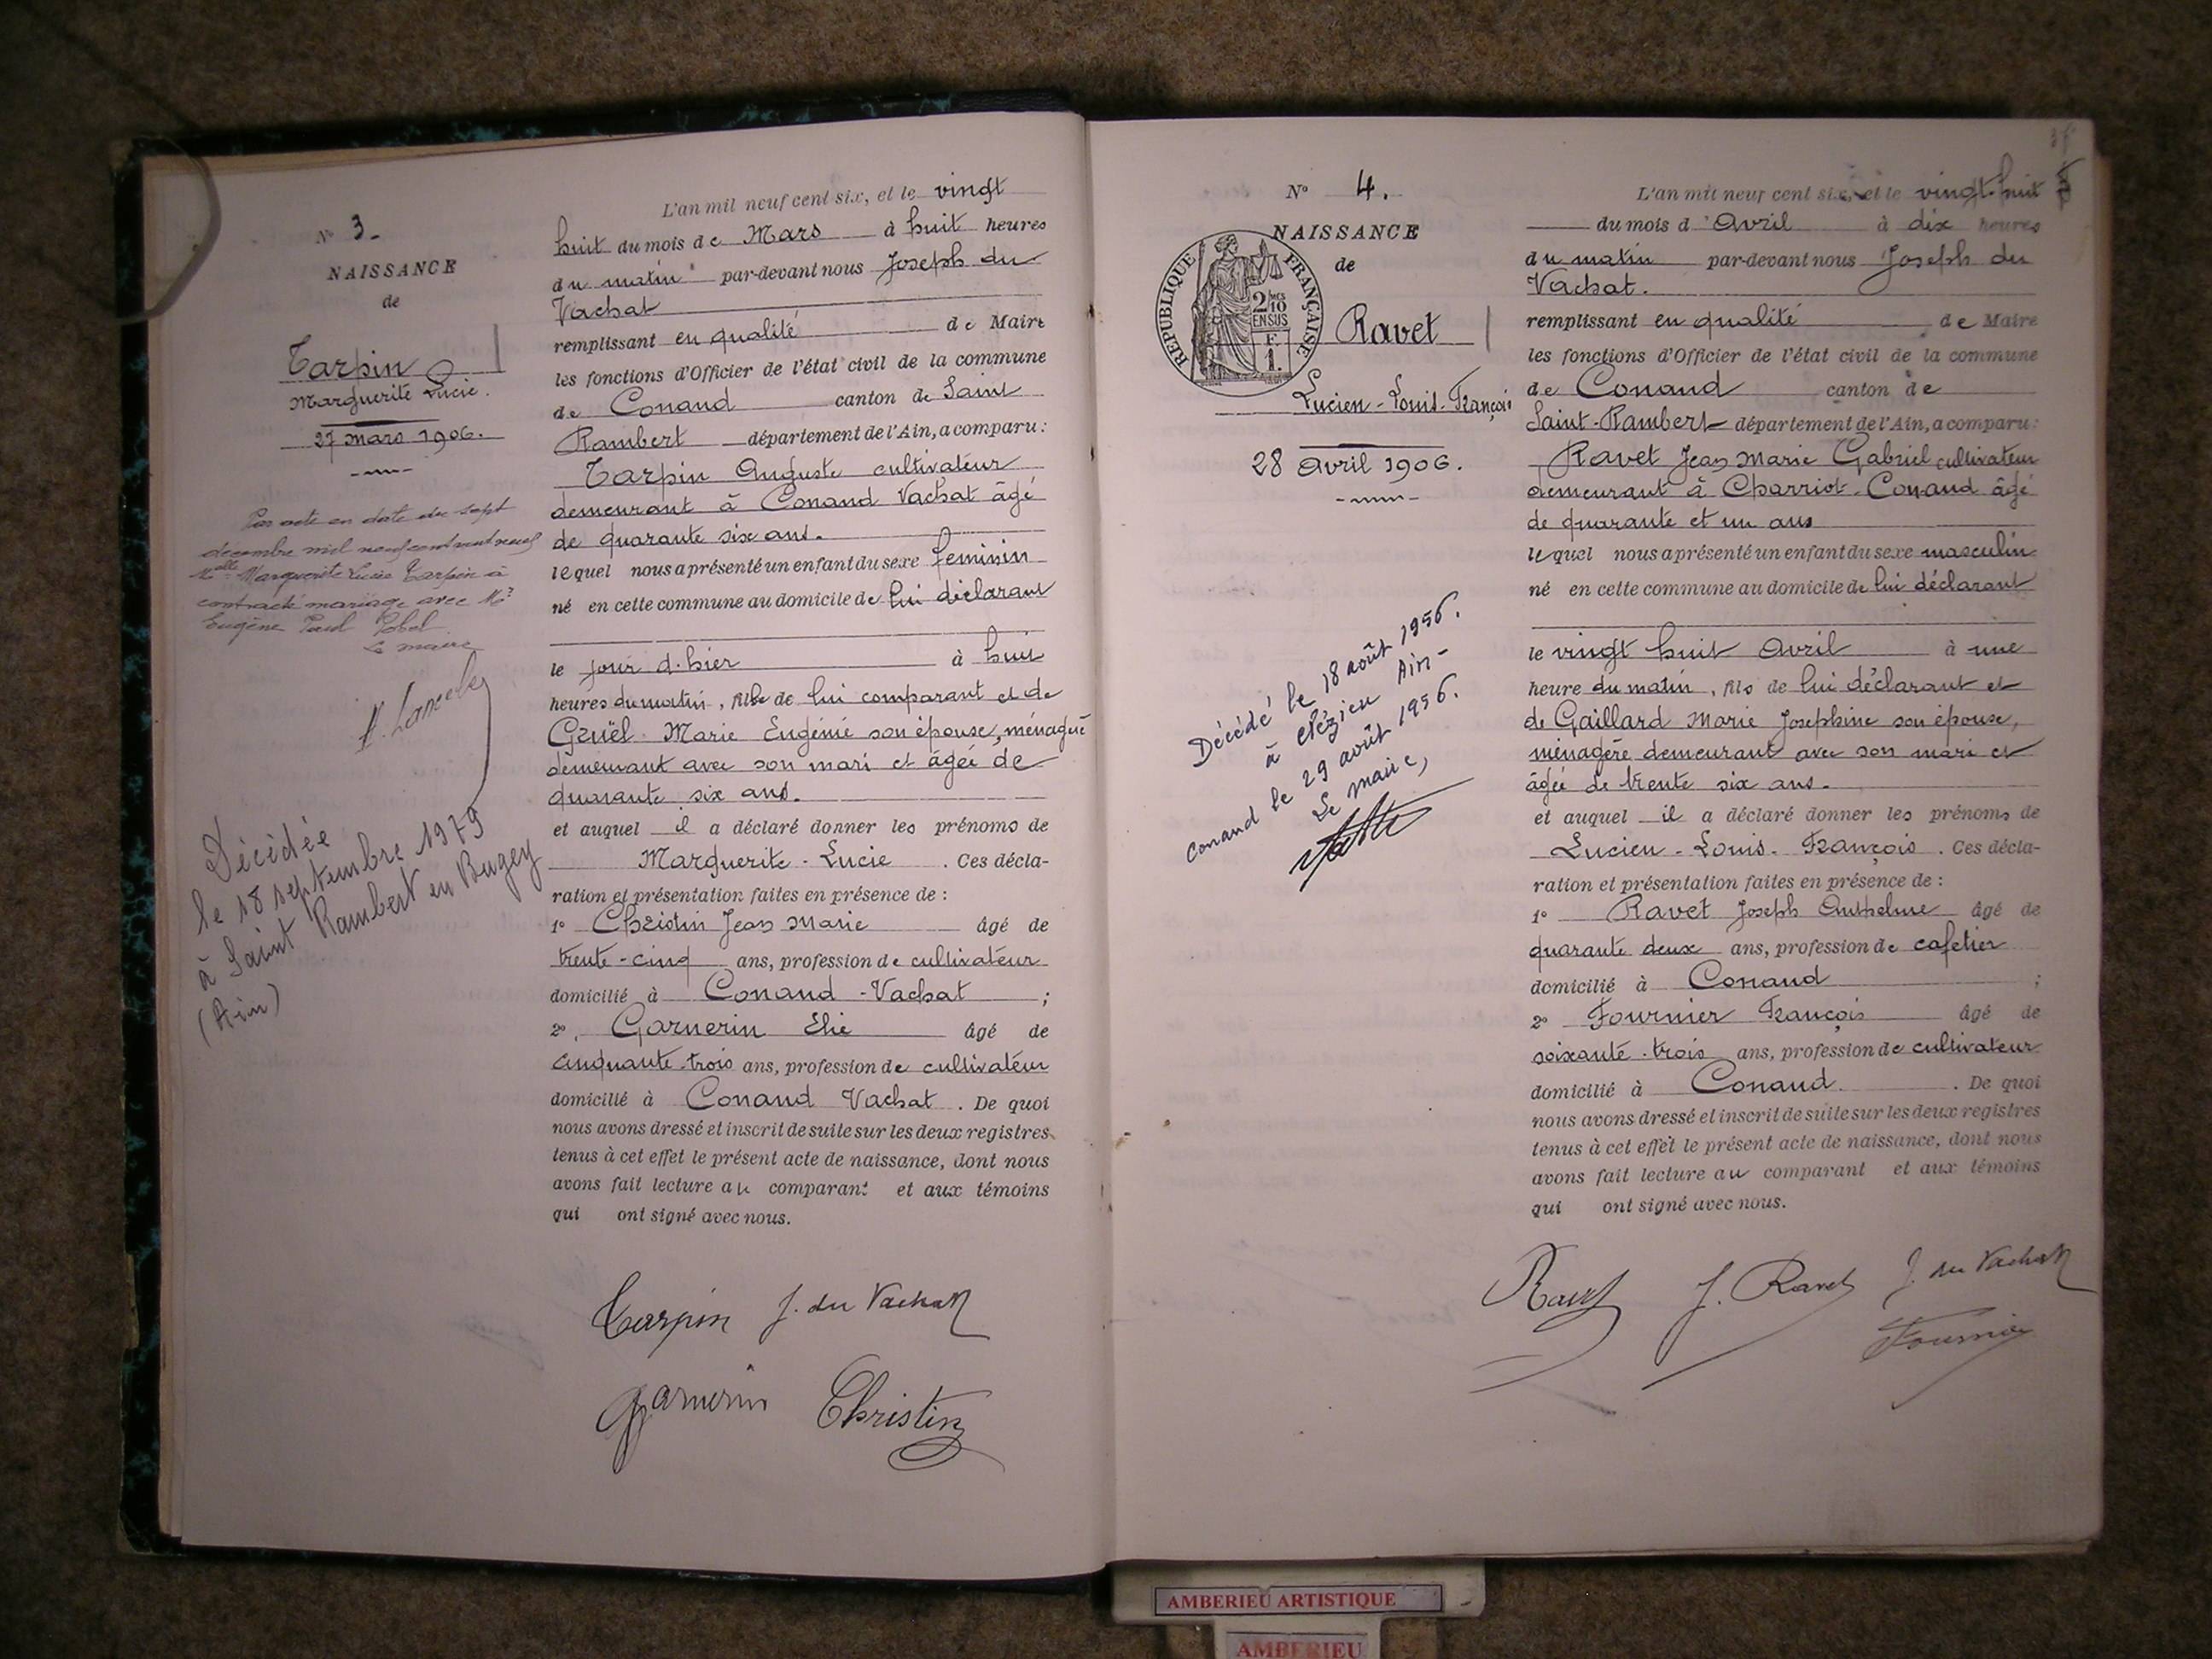 N° 3.
NAISSANCE
de
Tarpin
Marguerite Lucie.
27 mars 1906.
Par acte en date du sept
décembre mil neuf cent vingt neuf
Melle Marguerite Lucie Tarpin a
contracté mariage avec Mr
Eugène Paul
Le maire
Décédée
le 18 septembre 1979
à Saint Rambert en Bugey
(Ain)
L'an mil neuf cent six, et le vingt
huit du mois de Mars à huit heures
du matin par-devant nous Joseph du
Vachat
remplissant en qualité de Maire
les fonctions d'Officier de l'état civil de la commune
de Conand canton de Saint
Rambert département de l'Ain, a comparu :
Tarpin Auguste cultivateur
demeurant à Conand Vachat âgé
de quarante six ans.
lequel nous a présenté un enfant du sexe feminin
né en cette commune au domicile de lui déclarant
le jour d'hier à huit
heures du matin, fille de lui comparant et de
Gruël Marie Eugénie son épouse, ménagère
demeurant avec son mari et âgée de
quarante six ans.
et auquel il a déclaré donner les prénoms de
Marguerite - Lucie . Ces décla-
ration et présentation faites en présence de :
1° Christin Jean Marie âgé de
trente-cinq ans, profession de cultivateur
domicilié à Conand - Vachat ;
2° Garnerin Elie âgé de
cinquante-trois ans, profession de cultivateur
domicilié à Conand Vachat . De quoi
nous avons dressé et inscrit de suite sur les deux registres
tenus à cet effet le présent acte de naissance, dont nous
avons fait lecture au comparant et aux témoins
qui ont signé avec nous.
Tarpin J. du Vachat
Garnerin Christin
N° 4.
NAISSANCE
de
REPUBLIQUE FRANÇAISE
2/10 EN SUS
F. 1.
Ravet
Lucien - Louis - François
28 Avril 1906.
Décédé le 18 août 1956.
à Ain -
Conand le 29 août 1956.
Le maire,
L'an mil neuf cent six, et le vingt-huit
du mois d'Avril à dix heures
du matin par-devant nous Joseph du
Vachat.
remplissant en qualité de Maire
les fonctions d'Officier de l'état civil de la commune
de Conand canton de
Saint-Rambert département de l'Ain, a comparu :
Ravet Jean Marie Gabriel cultivateur
demeurant à Charriot-Conand âgé
de quarante et un ans
lequel nous a présenté un enfant du sexe masculin
né en cette commune au domicile de lui déclarant
le vingt huit Avril à une
heure du matin, fils de lui déclarant et
de Gaillard Marie Josephine son épouse,
ménagère demeurant avec son mari et
âgée de trente six ans.
et auquel il a déclaré donner les prénoms de
Lucien - Louis - François . Ces décla-
ration et présentation faites en présence de :
1° Ravet Joseph Anthelme âgé de
quarante deux ans, profession de cafetier
domicilié à Conand ;
2° Fournier François âgé de
soixante-trois ans, profession de cultivateur
domicilié à Conand . De quoi
nous avons dressé et inscrit de suite sur les deux registres
tenus à cet effet le présent acte de naissance, dont nous
avons fait lecture au comparant et aux témoins
qui ont signé avec nous.
Ravet J. Ravet J. du Vachat
Fournier
AMBERIEU ARTISTIQUE
AMBERIEU